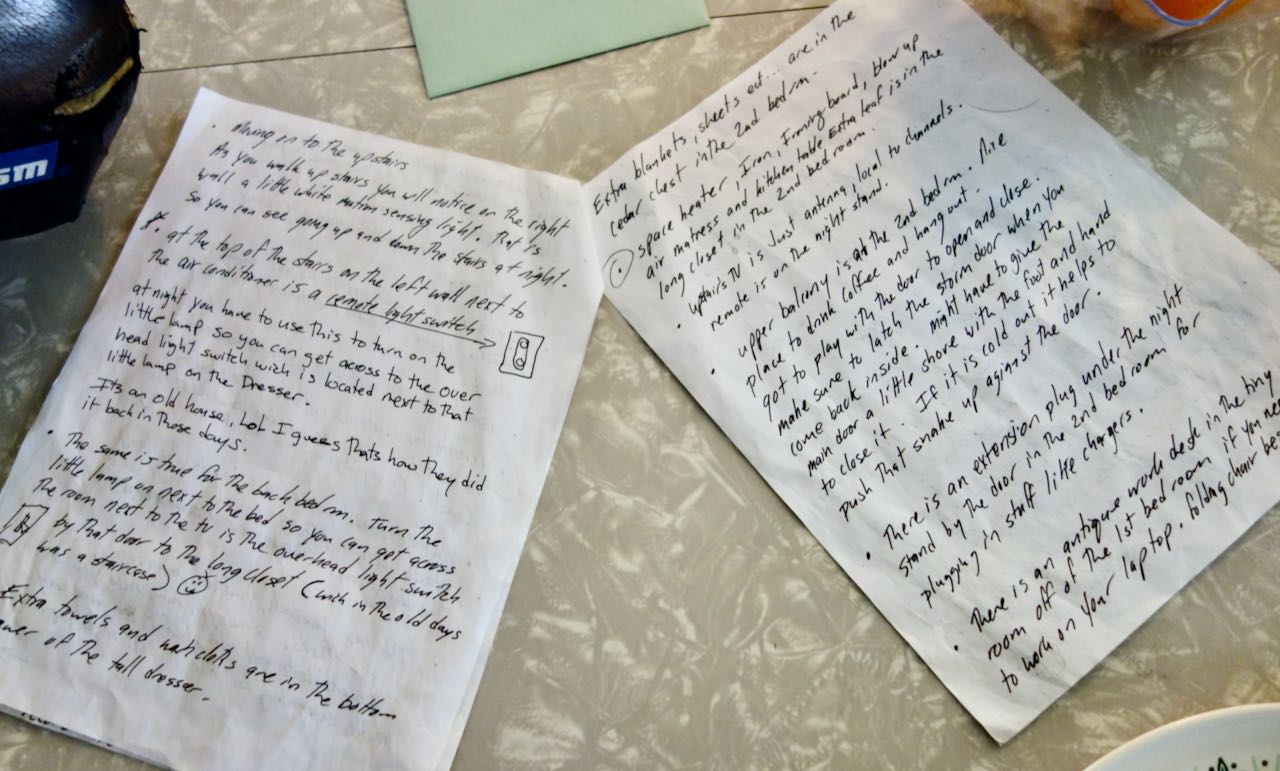 sm
• Moving on to the upstairs
As you walk up stairs you will notice on the right
wall a little white motion sensing light. That is
so you can see going up and down the stairs at night.
• at the top of the stairs on the left wall next to
the air conditioner is a remote light switch
at night you have to use this to turn on the
little lamp so you can get across to the over
head light switch wich is located next to that
little lamp on the Dresser.
Its an old house, but I guess thats how they did
it back in those days.
• The same is true for the back bedrm. Turn the
little lamp on next to the bed so you can get across
the room next to the tv is the overhead light switch
by that door to the long closet (wich in the old days
was a staircase)
Extra towels and wash cloths are in the bottom
of the tall dresser.
Extra blankets, sheets ect... are in the
cedar chest in the 2nd bedrm.
• space heater, Iron, Ironing board, blow up
air matress and kitchen table Extra leaf is in the
long closet in the 2nd bed room.
• upstairs TV is Just antenna local tv channels.
remote is on the night stand.
• upper balcony is at the 2nd bedrm. Nice
place to drink coffee and hang out.
got to play with the door to open and close.
make sure to latch the storm door when you
come back inside. might have to give the
main door a little shove with the foot and hand
to close it. If it is cold out it helps to
push that snake up against the door.
• There is an extension plug under the night
stand by the door in the 2nd bed room for
plugging in stuff like chargers.
• There is an antique work desk in the tiny
room off of the 1st bed room if you need
to work on your laptop. folding chair